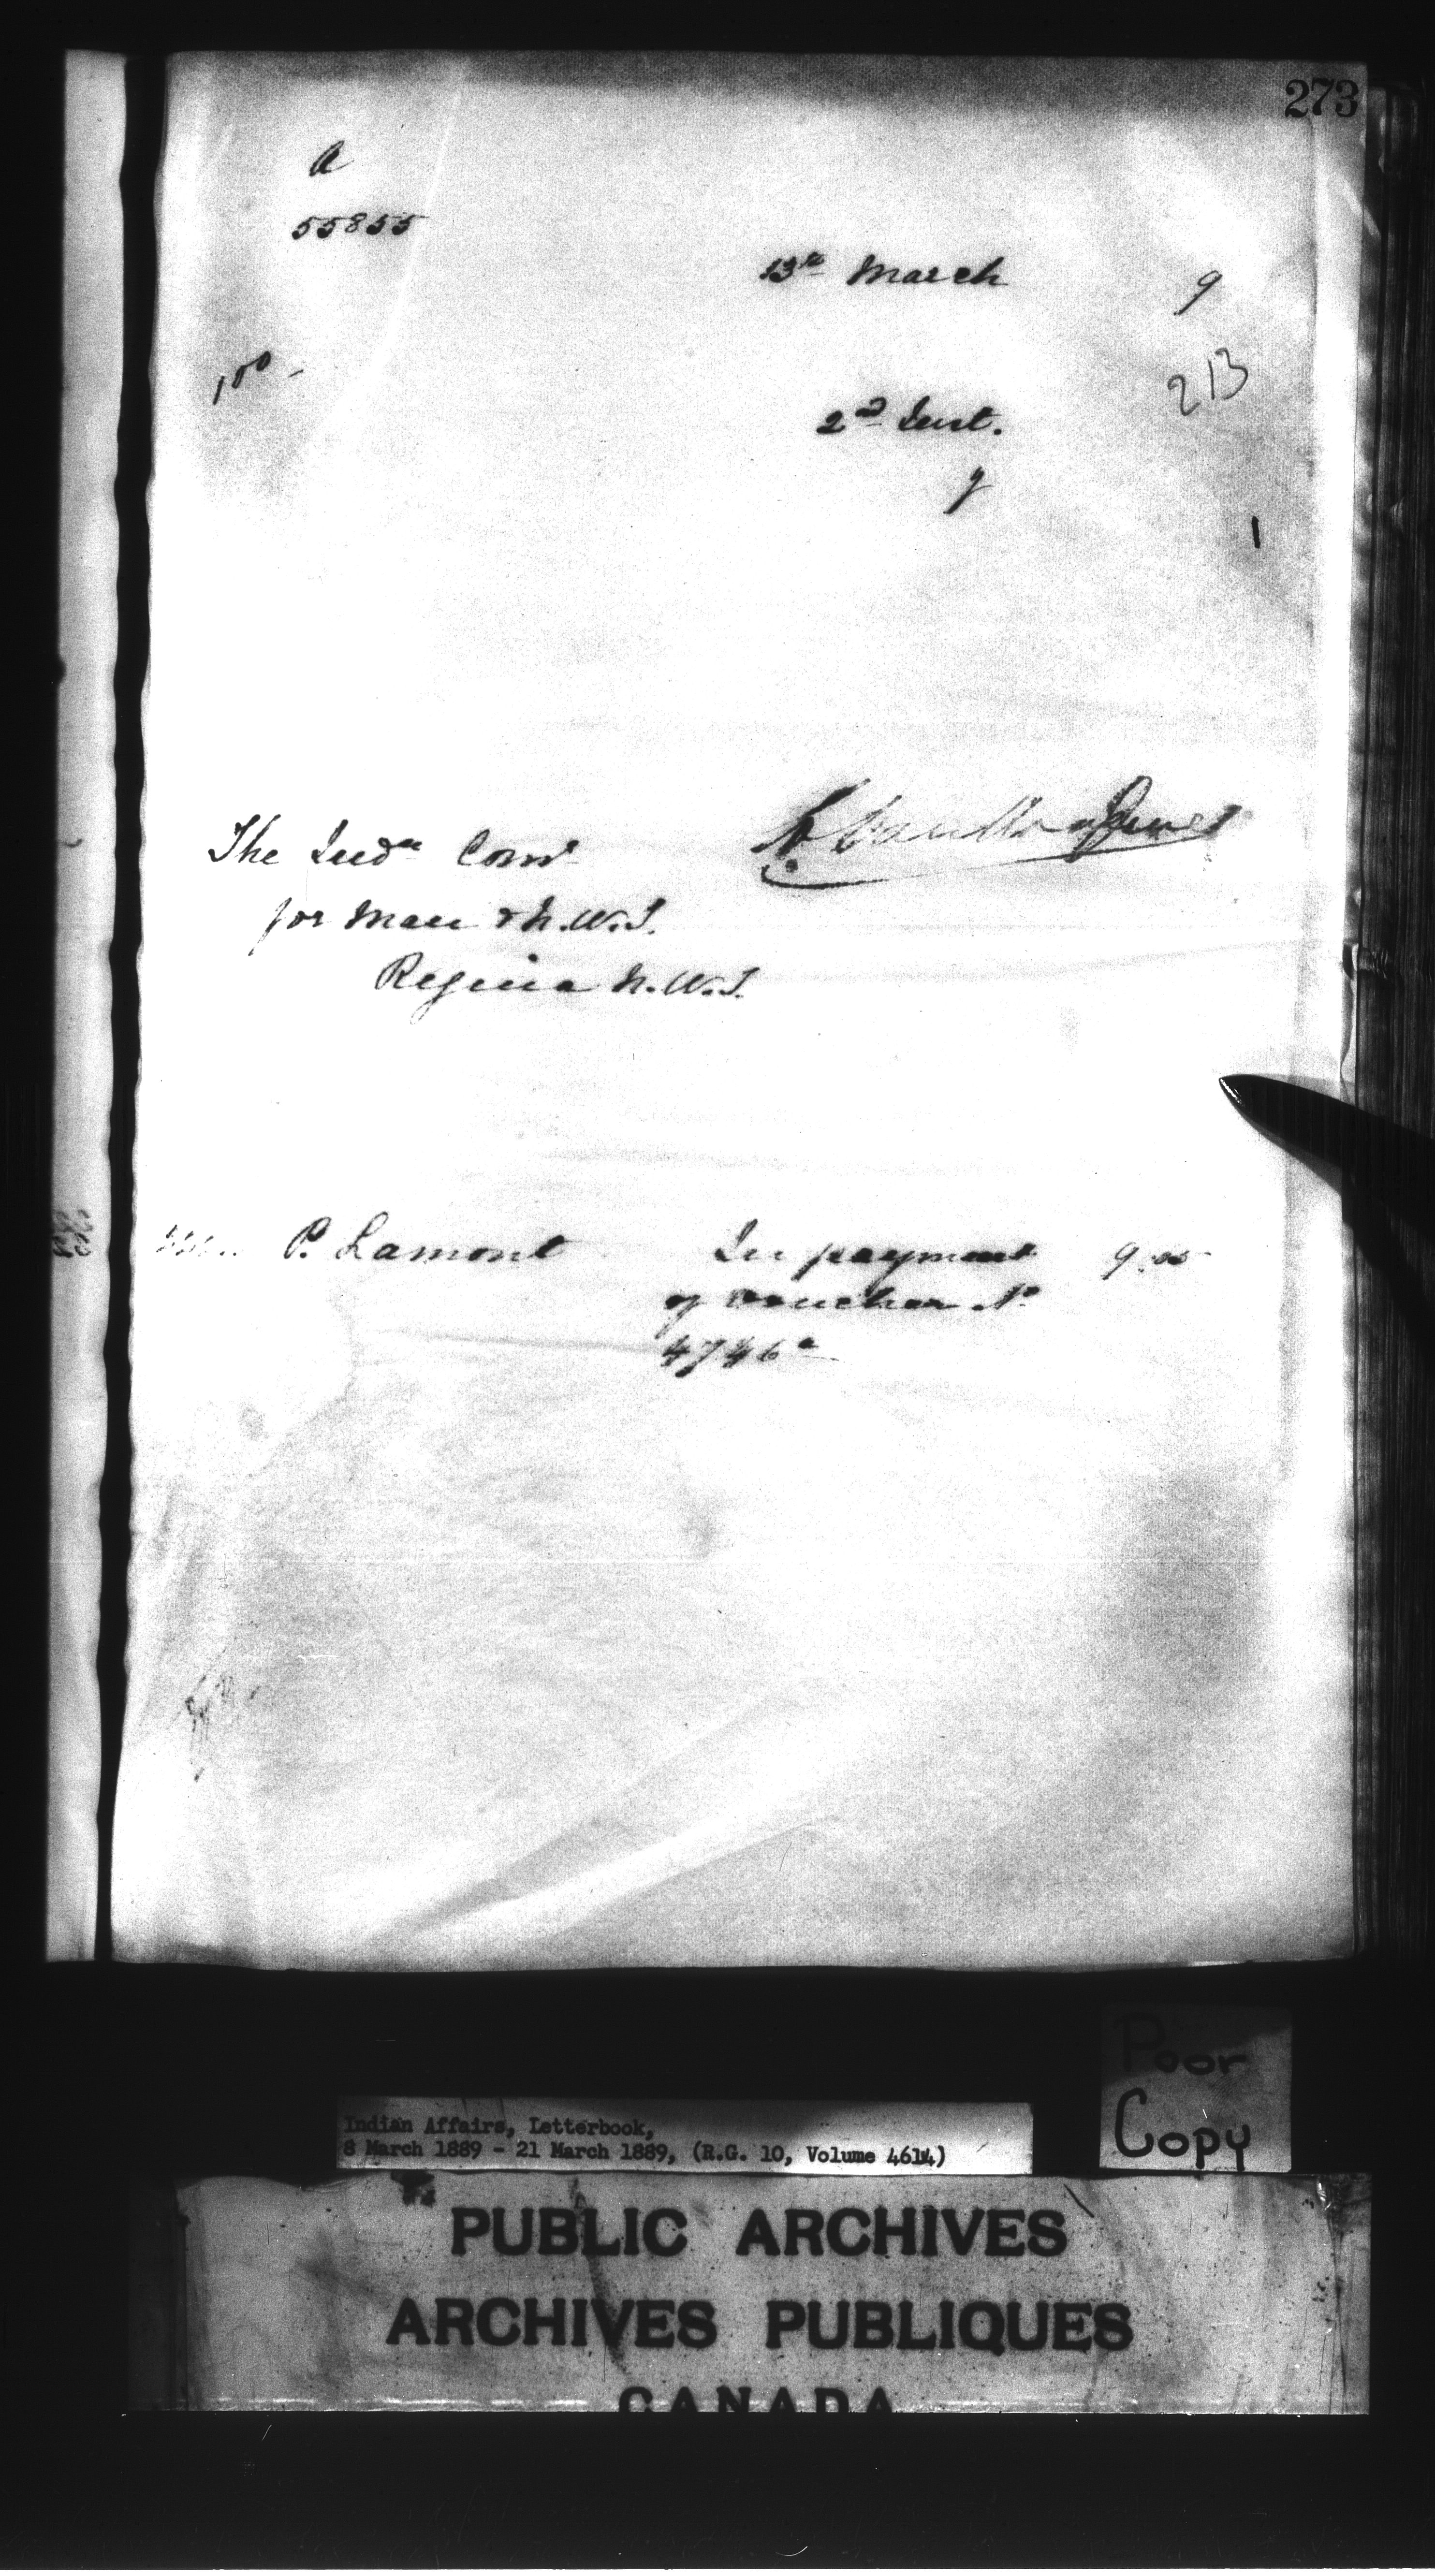 273
A
55855
13th March 9
213
100 -
2d Inst.
9
1
The Indn Comr
for Man & N.W.T.
Regina N.W.T.
P. Lamont In payment 9.00
of voucher No
4746a
Poor
Copy
Indian Affairs, Letterbook,
8 March 1889 - 21 March 1889, (R.G. 10, Volume 4614)
PUBLIC ARCHIVES
ARCHIVES PUBLIQUES
CANADA